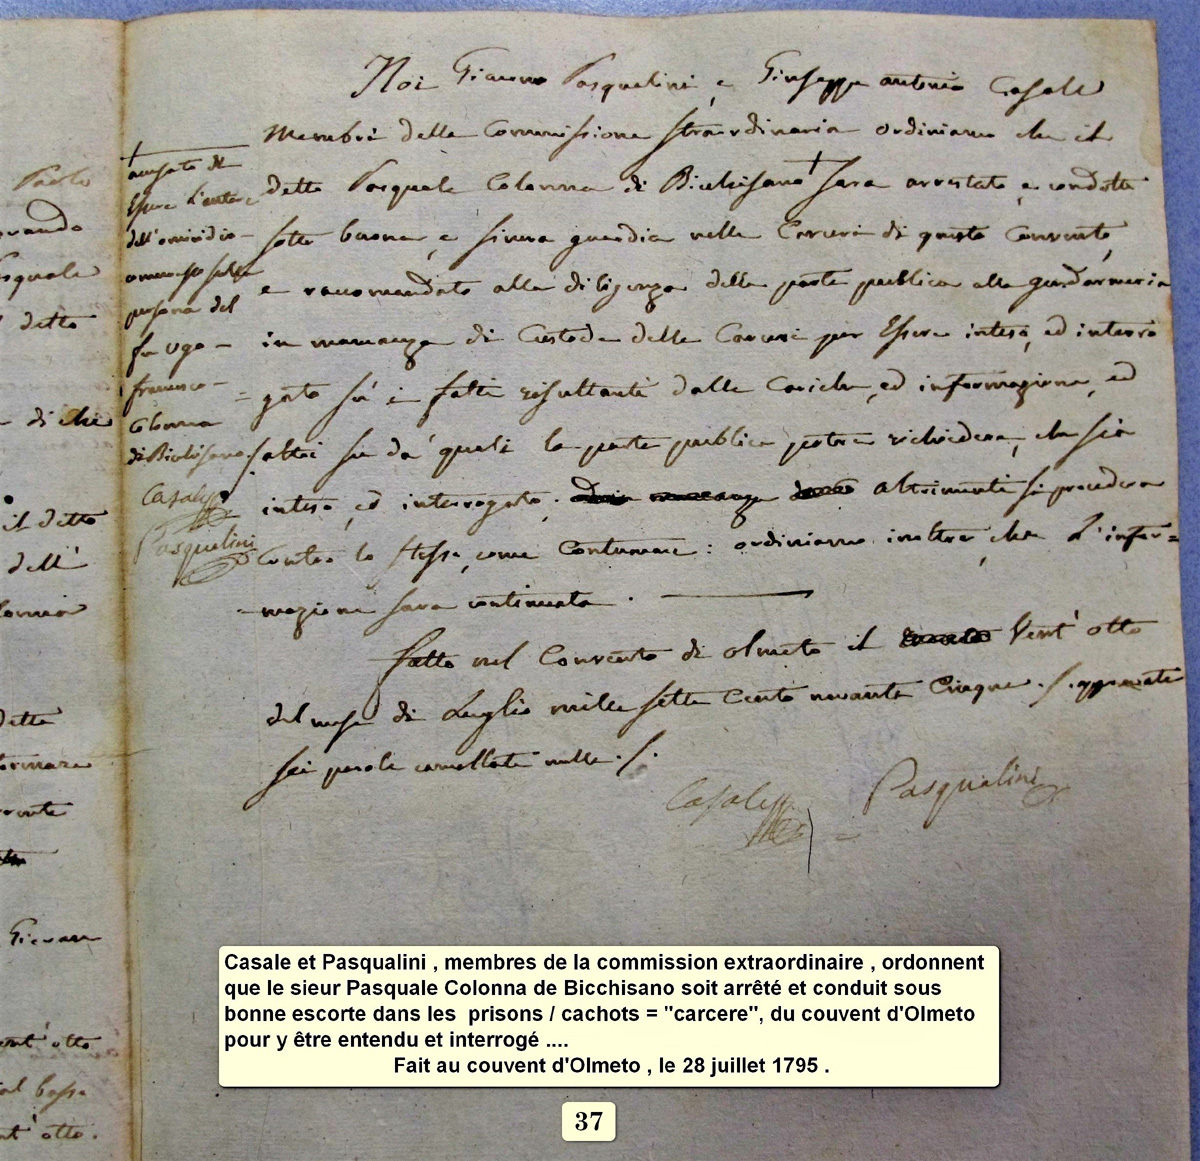 Paolo
detto
di che
il detto
dell'
detta
vent' otto
vent' otto.
†
accusato di
Essere l'autore
dell'omicidio
commesso nella
persona del
fu Ugo
francesco
Colonna
di Bicchisano ./
Casale
Pasqualini
Noi Giacomo Pasqualini, e Giuseppe antonio Casale
Membri della Commissione straordinaria ordiniamo che il
detto Pasquale Colonna di Bicchisano † sara arrestato, e condotto
sotto buona, e sicura guardia nelle Carceri di questo Convento,
e raccomandato alla diligenza della parte publica alla gendarmeria
in mancanza di Custode delle Carceri per Essere inteso, ed interro
gato sú i fatti risultanti dalle Cariche, ed informazione, ed
altri su da' quali la parte publica potra richiedere, che sia
inteso, ed interrogato, altrimenti si procedera
Contro lo stesso, come Contumace: ordiniamo inoltre, che L'infor=
=mazione sara continuata.
fatto nel Convento di olmeto il Vent' otto
del mese di Luglio mille sette Cento novanta Cinque ./. approvate
sei parole cancellate nulle ./.
Casale
Pasqualini
Casale et Pasqualini , membres de la commission extraordinaire , ordonnent
que le sieur Pasquale Colonna de Bicchisano soit arrêté et conduit sous
bonne escorte dans les prisons / cachots = "carcere", du couvent d'Olmeto
pour y être entendu et interrogé ....
Fait au couvent d'Olmeto , le 28 juillet 1795 .
37